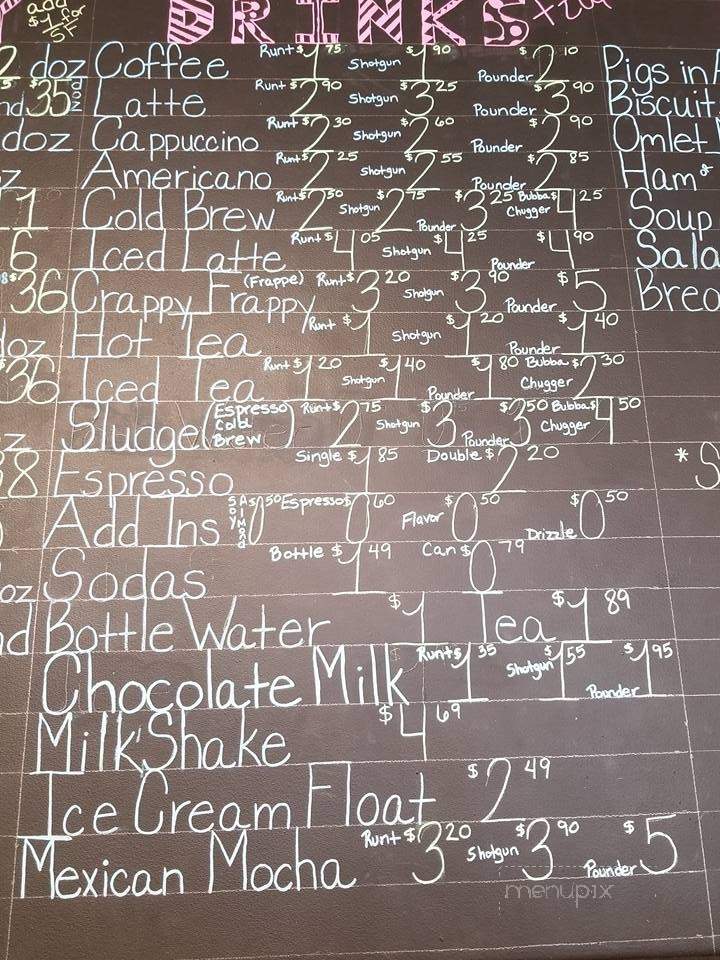 add $1 for 5¢
DRINKS +tax
2 doz Coffee Runt $1 75 Shotgun $1 90 Pounder $2 10 Pigs in
nd 35 doz Latte Runt $2 90 Shotgun $3 25 Pounder $3 90 Biscuit
doz Cappuccino Runt $2 30 Shotgun $2 60 Pounder $2 90 Omlet
z Americano Runt $2 25 Shotgun $2 55 Pounder $2 85 Ham &
1 Cold Brew Runt $2 50 Shotgun $2 75 Pounder $3 25 Bubba Chugger $4 25 Soup
6 Iced Latte Runt $4 05 Shotgun $4 25 Pounder $4 90 Sala
$36 Crappy Frappy (Frappe) Runt $3 20 Shotgun $3 90 Pounder $5 Brea
doz Hot Tea Runt $1 Shotgun $1 20 Pounder $1 40
36 Iced Tea Runt $1 20 Shotgun $1 40 Pounder $1 80 Bubba Chugger $2 30
z Sludge (Espresso Cold Brew) Runt $2 75 Shotgun $3 Pounder $3 50 Bubba Chugger $4 50
8 Espresso Single $1 85 Double $2 20 * S
Add Ins Soy Almond $0 50 Espresso $0 60 Flavor $0 50 Drizzle $0 50
oz Sodas Bottle $1 49 Can $0 79
d Bottle Water $1 Tea $1 89
Chocolate Milk Runt $1 35 Shotgun $1 55 Pounder $1 95
Milk Shake $4 69
Ice Cream Float $2 49
Mexican Mocha Runt $3 20 Shotgun $3 90 Pounder $5
menupix